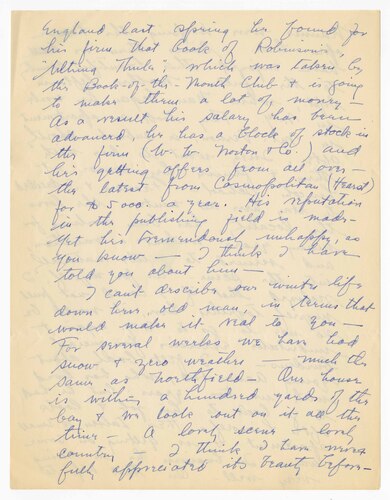 England last spring he found for
his firm that book of Robinson's
"Wltning Thuler", which was taken by
the Book-of-the-Month Club & is going
to make them a lot of money —
As a result his salary has been
advanced, he has a block of stock in
the firm (W. W. Norton & Co.) and
he's getting offers from all over —
the latest from Cosmopolitan (Hearst)
for $5000. a year. His reputation
in the publishing field is made —
yet his tremendously unhappy, as
you know — I think I have
told you about him —
I can't describe our winter life
down here, old man, in terms that
would make it real to you —
For several weeks we have had
snow & zero weather — much the
same as Northfield — Our house
is within a hundred yards of the
bay & we look out on it all the
time — A lovely scene — lovely
country — I think I have
fully appreciated its beauty before —